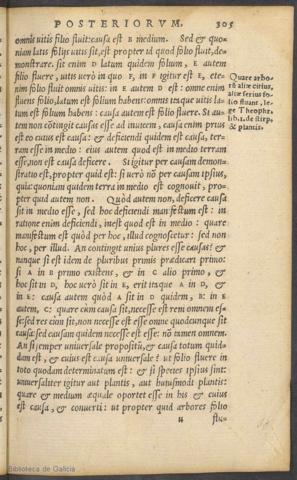 POSTERIORVM. 305
omnis uitis folio fluit: causa est B medium. Sed & quo-
niam latis folijs uitis sit, est propter id quod folio fluit, de-
monstrare. sit enim D latum quidem folium, E autem
folio fluere, uitis uerò in quo F, in F igitur est E, ete-
nim folio fluit omnis uitis: in E autem D est: omne enim
fluens folio, latum est folium habens: omnis itaque uitis la-
tum folium habens: causa autem est folio fluere. Si au-
tem non cōtingit causas esse ad inuicem, causa enim prius
est eo cuius est causa: & deficiendi quidem est causa, ter-
ram esse in medio: eius autem quod est in medio terram
esse, non est causa deficere. Si igitur per causam demon-
stratio est, propter quid est: si uerò nō per causam ipsius,
quia: quoniam quidem terra in medio est cognouit, pro-
pter quid autem non. Quòd autem non, deficere causa
sit in medio esse, sed hoc deficiendi manifestum est: in
ratione enim deficiendi, inest quod est in medio: quare
manifestum est quòd per hoc, illud cognoscetur: sed non
hoc, per illud. An contingit unius plures esse causas? &
nanque si est idem de pluribus primis prædicari primò:
si A in B primo existens, & in C alio primo, &
hoc sit in D, hoc uerò sit in E, erit itaque A in D, &
in E: causa autem quòd A sit in D quidem, B: in E
autem, C: quare cum causa sit, necesse est rem omnem es-
se: sed res cùm sit, non necesse est esse omne quodcunque sit
causa: sed causam quidem necesse est esse: nō tamen omnem.
An si semper uniuersale propositū, & causa totum quid-
dam est, & cuius est causa uniuersale: ut folio fluere in
toto quodam determinatum est: & si species ipsius sint:
uniuersaliter igitur aut plantis, aut huiusmodi plantis:
quare & medium æquale oportet esse in his & cuius
est causa, & conuerti: ut propter quid arbores folio
u flu-
Quare arbo-
rū aliæ citius,
aliæ serius fo-
lio fluant, le-
ge Theophr.
lib.1. de stirp.
& plantis.
Biblioteca de Galicia